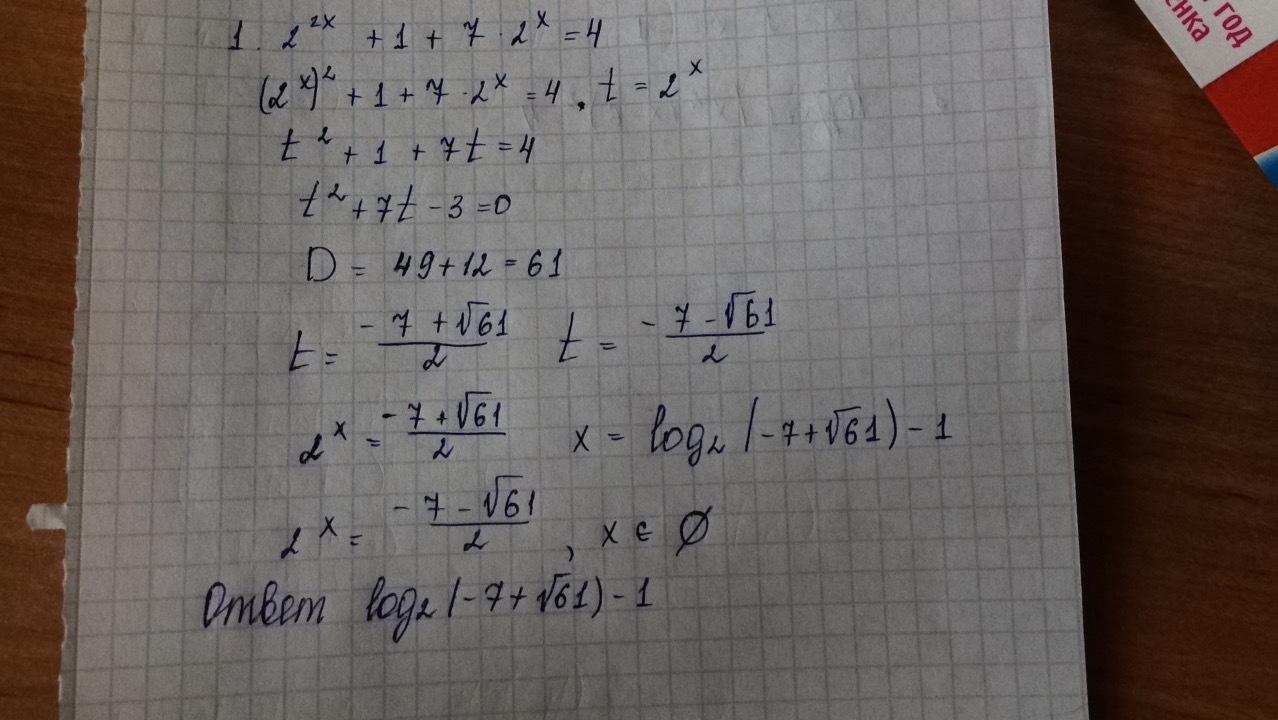 1. 2^{2x} + 1 + 7 · 2^x = 4
(2^x)^2 + 1 + 7 · 2^x = 4, t = 2^x
t^2 + 1 + 7t = 4
t^2 + 7t - 3 = 0
D = 49 + 12 = 61
t = \frac{-7 + √61}{2} t = \frac{-7 - √61}{2}
2^x = \frac{-7 + √61}{2} x = log_2 (-7 + √61) - 1
2^x = \frac{-7 - √61}{2}, x ∈ ∅
Ответ log_2 (-7 + √61) - 1
год
енка